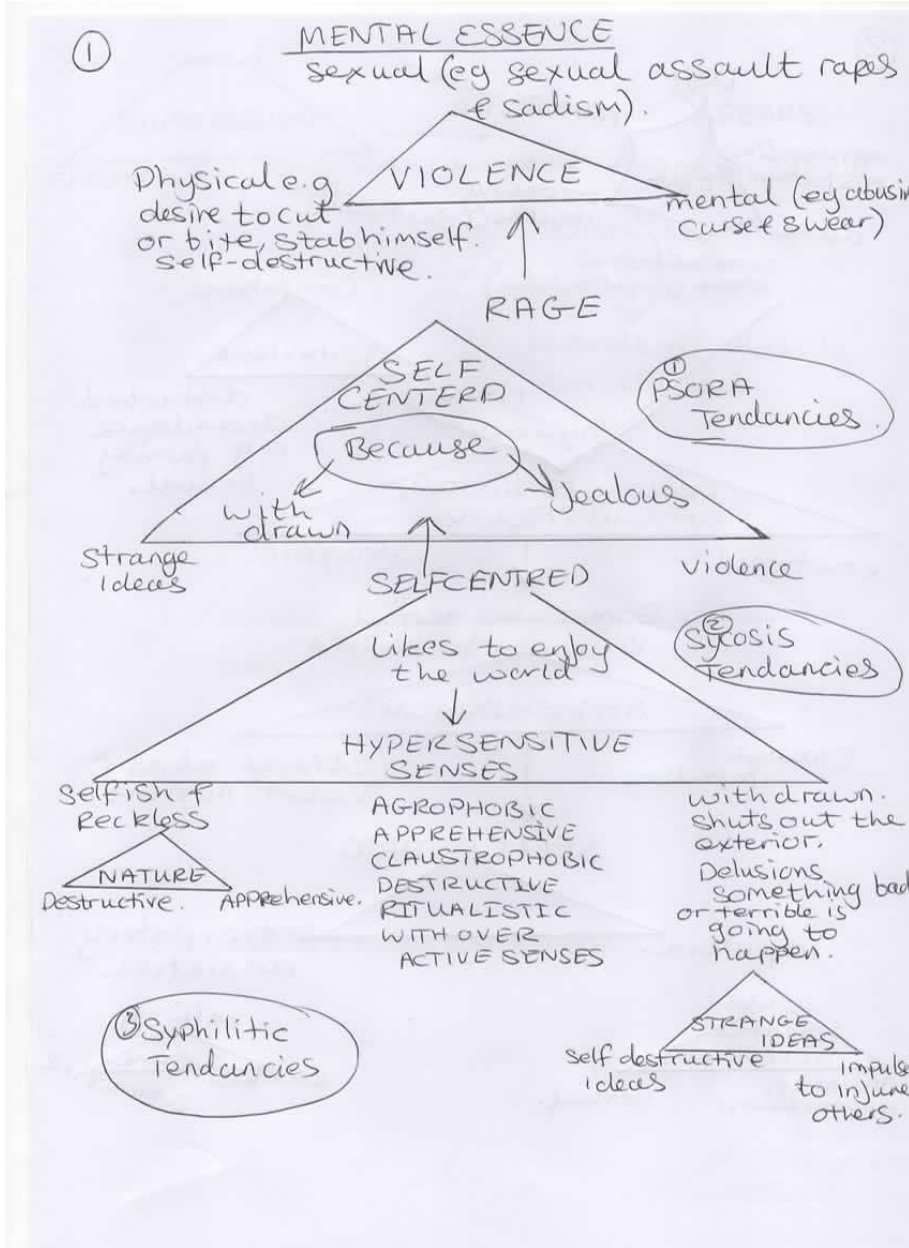 ①
MENTAL ESSENCE
sexual (eg sexual assault rapes
& sadism).
VIOLENCE
Physical e.g
desire to cut
or bite, stab himself.
self-destructive.
mental (eg abusin
curse & swear)
RAGE
SELF
CENTERD
Because
with
drawn
Jealous
① PSORA
Tendancies.
Strange
ideas
violence
SELFCENTRED
Likes to enjoy
the world
② Sycosis
Tendancies
HYPERSENSITIVE
SENSES
Selfish &
Reckless
NATURE
Destructive. Apprehensive.
AGROPHOBIC
APPREHENSIVE
CLAUSTROPHOBIC
DESTRUCTIVE
RITUALISTIC
WITH OVER
ACTIVE SENSES
withdrawn.
shuts out the
exterior.
Delusions
something bad
or terrible is
going to
happen.
STRANGE
IDEAS
Self destructive
ideas
impulse
to injure
others.
③ Syphilitic
Tendancies